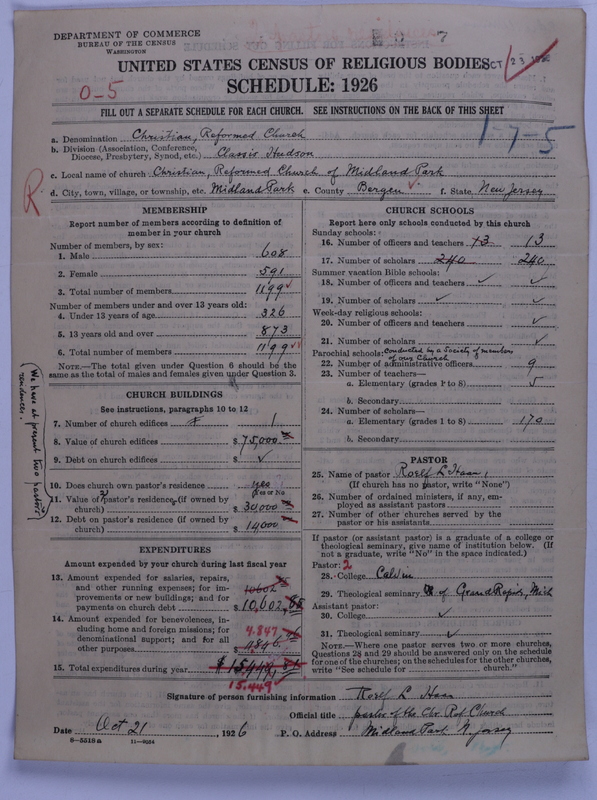 DEPARTMENT OF COMMERCE
BUREAU OF THE CENSUS
WASHINGTON
UNITED STATES CENSUS OF RELIGIOUS BODIES
OCT 23
SCHEDULE: 1926
0-5
FILL OUT A SEPARATE SCHEDULE FOR EACH CHURCH. SEE INSTRUCTIONS ON THE BACK OF THIS SHEET
1-7-5
a. Denomination Christian, Reformed Church
b. Division (Association, Conference,
Diocese, Presbytery, Synod, etc.) Classis Hudson
c. Local name of church Christian, Reformed Church of Midland Park
R
d. City, town, village, or township, etc. Midland Park e. County Bergen f. State New Jersey
MEMBERSHIP
Report number of members according to definition of
member in your church
Number of members, by sex:
1. Male 608
2. Female 591
3. Total number of members 1199
Number of members under and over 13 years old:
4. Under 13 years of age 326
5. 13 years old and over 873
6. Total number of members 1199
NOTE.—The total given under Question 6 should be the
same as the total of males and females given under Question 3.
CHURCH BUILDINGS
See instructions, paragraphs 10 to 12
7. Number of church edifices 1
8. Value of church edifices $75,000
9. Debt on church edifices $ ✓
10. Does church own pastor's residence yes
(Yes or No)
11. Value of 2 pastor's residences (if owned by
church) $30,000
12. Debt on pastor's residence (if owned by
church) $14,000
We have at present two pastor's
residences.
EXPENDITURES
Amount expended by your church during last fiscal year
13. Amount expended for salaries, repairs,
and other running expenses; for im-
provements or new buildings; and for
payments on church debt 10602
$10,602,85
14. Amount expended for benevolences,
including home and foreign missions; for
denominational support; and for all
other purposes 4,847
$4846,96
15. Total expenditures during year $15,449,81
15,449
CHURCH SCHOOLS
Report here only schools conducted by this church
Sunday schools:
16. Number of officers and teachers 13 13
17. Number of scholars 240 240
Summer vacation Bible schools:
18. Number of officers and teachers ✓ ✓
19. Number of scholars ✓ ✓
Week-day religious schools:
20. Number of officers and teachers ✓
21. Number of scholars ✓
Parochial schools: conducted by a Society of members
of our Church
22. Number of administrative officers 9
23. Number of teachers—
a. Elementary (grades 1 to 8) 5
b. Secondary
24. Number of scholars—
a. Elementary (grades 1 to 8) 170
b. Secondary
PASTOR
25. Name of pastor Roelf L Haan,
(If church has no pastor, write "None")
26. Number of ordained ministers, if any, em-
ployed as assistant pastors
27. Number of other churches served by the
pastor or his assistants
If pastor (or assistant pastor) is a graduate of a college or
theological seminary, give name of institution below. (If
not a graduate, write "No" in the space indicated.)
Pastor: 2
28. College Calvin
29. Theological seminary of Grand Rapids, Mich
Assistant pastor:
30. College ✓
31. Theological seminary ✓
NOTE.—Where one pastor serves two or more churches,
Questions 28 and 29 should be answered only on the schedule
for one of the churches; on the schedules for the other churches,
write "See schedule for church."
Signature of person furnishing information Roelf L Haan
Official title pastor of the Chr. Ref. Church
Date Oct 21, 1926 P. O. Address Midland Park N. Jersey
8—5518a 11—9024